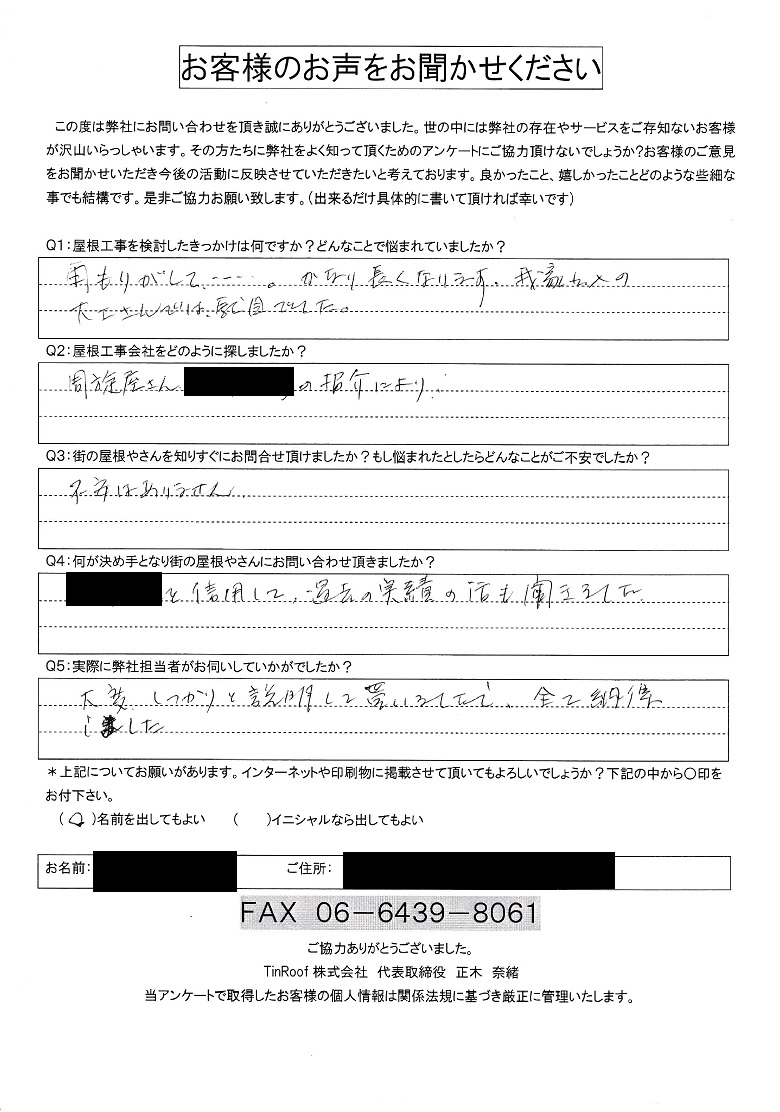 お客様のお声をお聞かせください
この度は弊社にお問い合わせを頂き誠にありがとうございました。世の中には弊社の存在やサービスをご存知ないお客様
が沢山いらっしゃいます。その方たちに弊社をよく知って頂くためのアンケートにご協力頂けないでしょうか？お客様のご意見
をお聞かせいただき今後の活動に反映させていただきたいと考えております。良かったこと、嬉しかったことどのような些細な
事でも結構です。是非ご協力お願い致します。（出来るだけ具体的に書いて頂ければ幸いです）
Q1：屋根工事を検討したきっかけは何ですか？どんなことで悩まれていましたか？
雨もりがして、----。かなり長くなります。我家の
大工さんでは、駄目でした。
Q2：屋根工事会社をどのように探しましたか？
周旋屋さん の紹介により
Q3：街の屋根やさんを知りすぐにお問合せ頂けましたか？もし悩まれたとしたらどんなことがご不安でしたか？
不安はありません
Q4：何が決め手となり街の屋根やさんにお問い合わせ頂きましたか？
を信用して、過去の実績の話も聞きました
Q5：実際に弊社担当者がお伺いしていかがでしたか？
大変しっかりと説明して貰いましたので、全て納得
しました
＊上記についてお願いがあります。インターネットや印刷物に掲載させて頂いてもよろしいでしょうか？下記の中から〇印を
お付下さい。
（〇）名前を出してもよい （ ）イニシャルなら出してもよい
お名前： ご住所：
FAX 06－6439－8061
ご協力ありがとうございました。
TinRoof 株式会社 代表取締役 正木 奈緒
当アンケートで取得したお客様の個人情報は関係法規に基づき厳正に管理いたします。